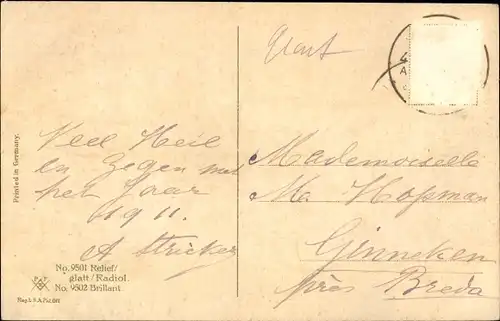 Kaart
Printed in Germany.
Veel Heil
En Zegen met
het Jaar
1911.
A Stricker
Mademoiselle
M. Hopman
Ginneken
près Breda
No. 9501 Relief/
glatt/Radiol.
No. 9502 Brillant.